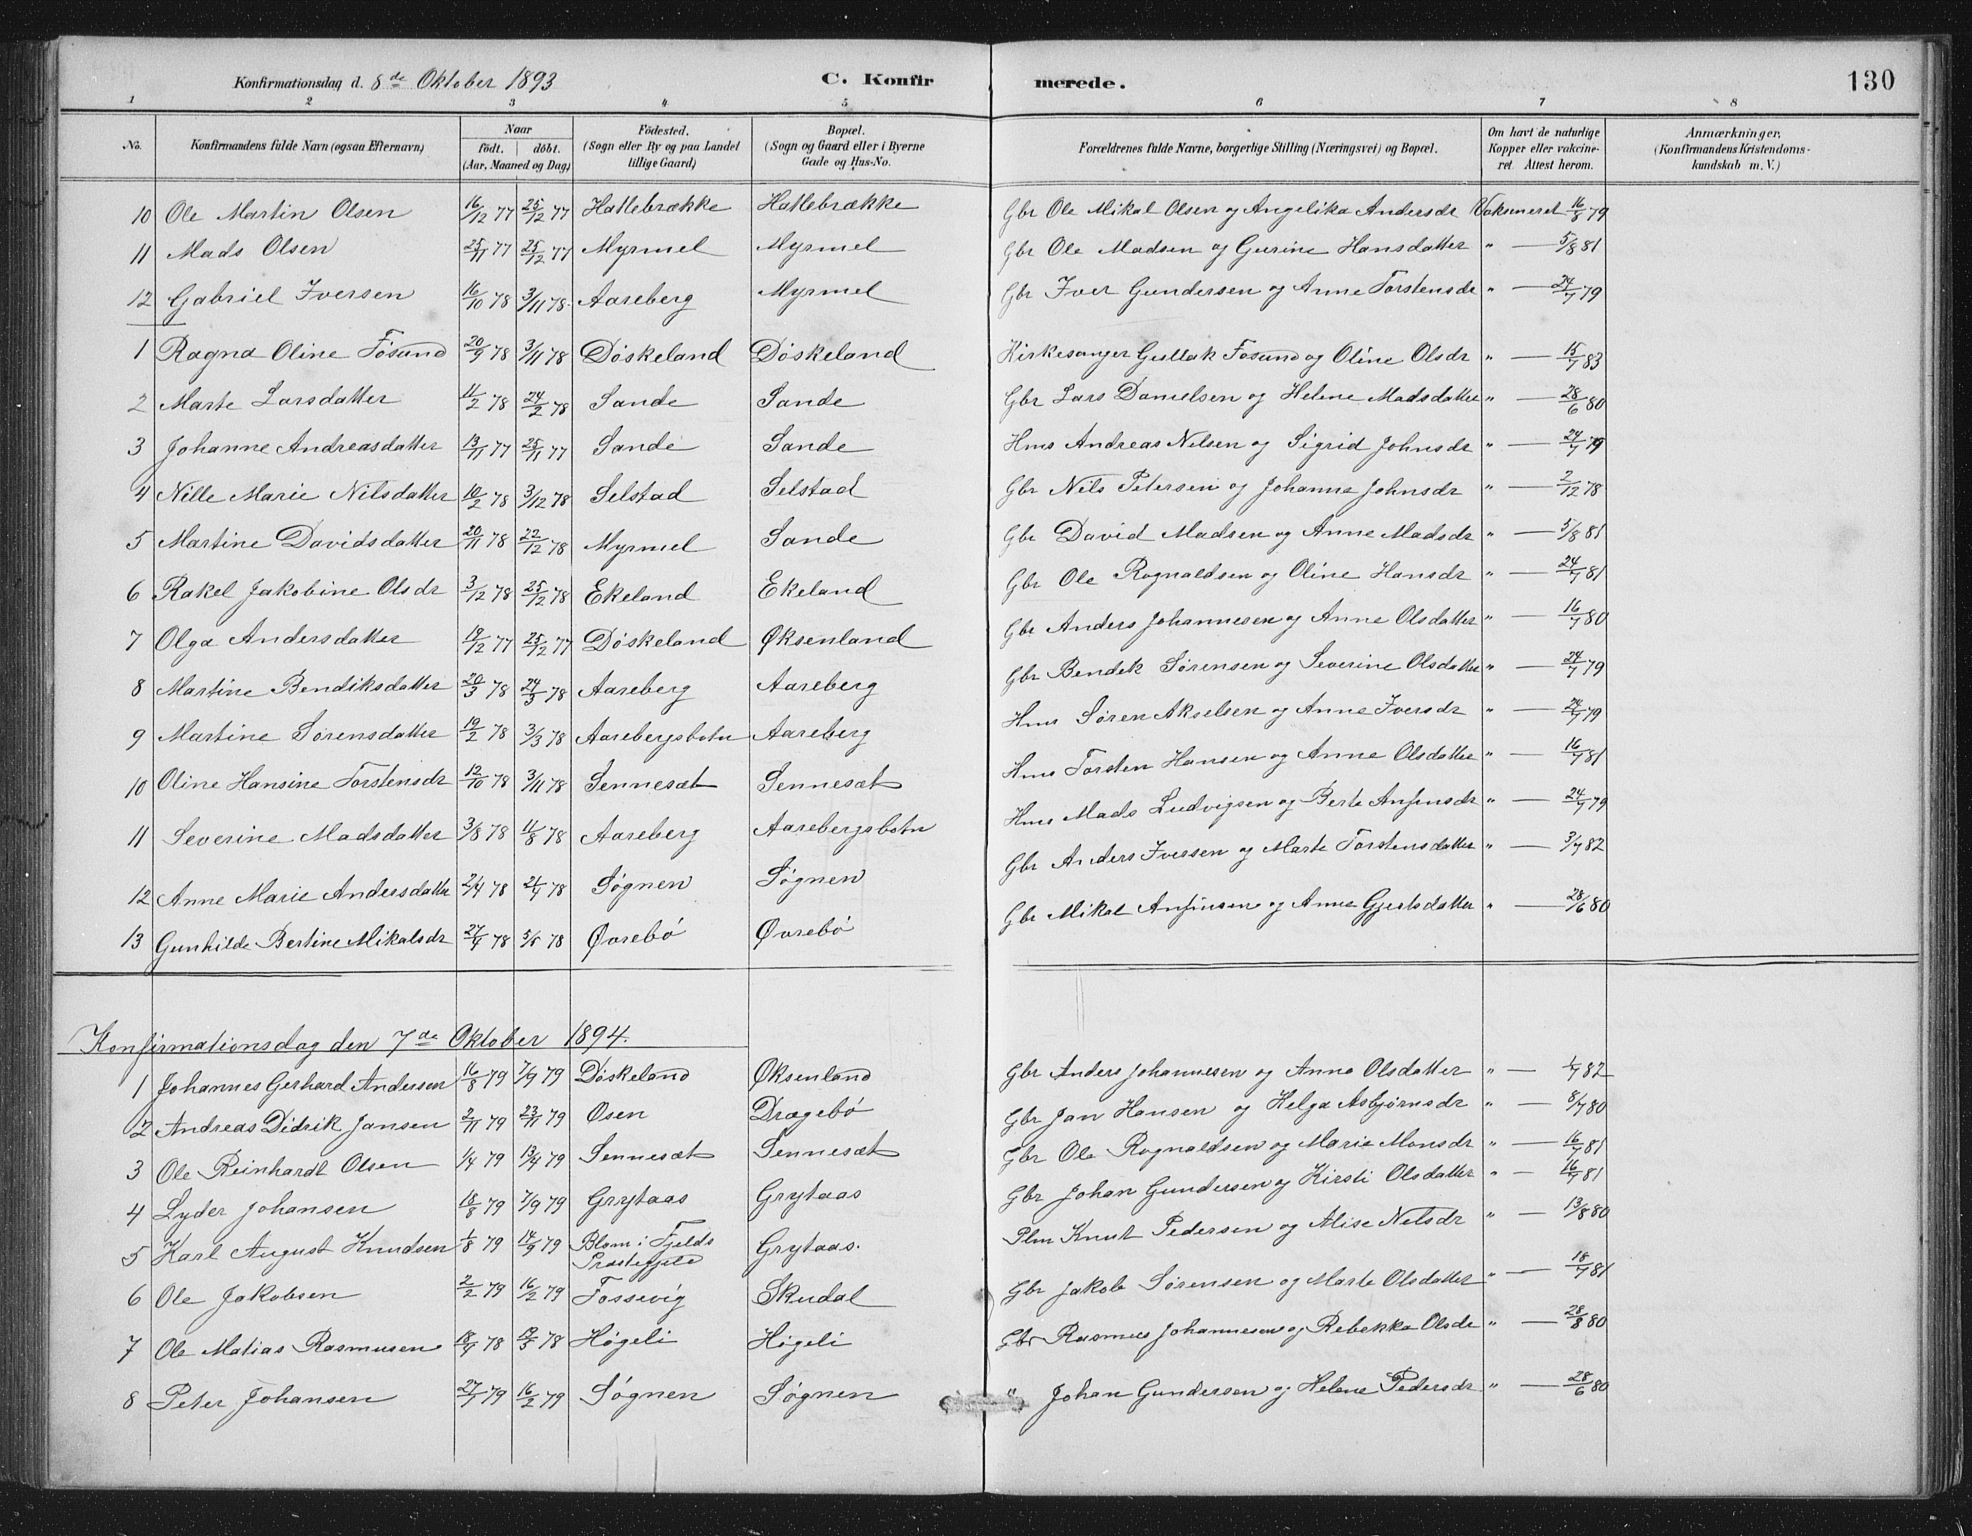 Konfirmationsdag d. 8de Oktober 1893 C. Konfirmerede. 130
1 2 3 4 5 6 7 8
No. Konfirmandens fulde Navn (ogsaa Efternavn) Naar födt. döbt. (Aar, Maaned og Dag) Födested. (Sogn eller By og paa Landet tillige Gaard) Bopæl. (Sogn og Gaard eller i Byerne Gade og Hus-No. Forældrenes fulde Navne, borgerlige Stilling (Næringsvei) og Bopæl. Om havt de naturlige Kopper eller vakcineret. Attest herom. Anmærkninger, (Konfirmandens Kristendomskundskab m. V.)
10 Ole Martin Olsen 16/12 77 25/12 77 Hatlebrække Hatlebrække Gbr Ole Mikal Olsen og Angelika Andersdr Vaksineret 16/8 79
11 Mads Olsen 25/11 77 25/12 77 Myrmel Myrmel Gbr Ole Madsen og Gurine Hansdatter " — 5/8 81
12 Gabriel Iversen 16/10 78 3/11 78 Aareberg Myrmel Gbr Iver Gundersen og Anne Torstensdr " — 24/7 79
1 Ragna Oline Fosund 20/9 78 3/11 78 Döskeland Döskeland Kirkesanger Guttak Fosund og Oline Olsdr " — 15/7 83
2 Marte Larsdatter 11/2 78 24/2 78 Sande Sande Gbr Lars Danielsen og Helene Madsdatter " — 28/6 80
3 Johanne Andreasdatter 13/11 77 25/11 77 Sande Sande Hms Andreas Nilsen og Sigrid Johnsdr " — 24/7 79
4 Nille Marie Nilsdatter 10/2 78 3/12 78 Selstad Selstad Gbr Nils Petersen og Johanne Johnsdr " — 2/12 78
5 Martine Davidsdatter 20/11 78 22/12 78 Myrmel Sande Gbr David Madsen og Anne Madsdr " — 5/8 81
6 Rakel Jakobine Olsdr 3/12 78 25/12 78 Ekeland Ekeland Gbr Ole Rognaldsen og Oline Hansdr " — 24/7 81
7 Olga Andersdatter 19/12 77 25/12 77 Döskeland Øksenland Gbr Anders Johannesen og Anne Olsdatter " — 16/7 80
8 Martine Bendiksdatter 20/3 78 24/3 78 Aareberg Aareberg Gbr Bendik Sørensen og Severine Olsdatter " — 24/7 79
9 Martine Sørensdatter 19/2 78 3/3 78 Aarebergsbotn Aareberg Hms Søren Akselsen og Anne Iversdr " — 24/7 79
10 Oline Hansine Torstensdr 12/10 78 3/11 78 Sennesæt Sennesæt Hms Torsten Hansen og Anne Olsdatter " — 16/7 81
11 Severine Madsdatter 3/8 78 11/8 78 Aareberg Aarebergsbotn Hms Mads Ludvigsen og Berte Anfinsdr " — 24/7 79
12 Anne Marie Andersdatter 2/4 78 21/4 78 Søgnen Søgnen Gbr Anders Iversen og Marte Torstensdatter " — 3/7 82
13 Gunhilde Bertine Mikalsdr 27/4 78 5/5 78 Øvrebö Øvrebö Gbr Mikal Anfinsen og Anne Gjertsdatter " — 28/6 80
Konfirmationsdag den 7de Oktober 1894.
1 Johannes Gerhard Andersen 16/8 79 7/9 79 Döskeland Øksenland Gbr Anders Johannesen og Anna Olsdatter " — 1/7 82
2 Andreas Didrik Jansen 2/11 79 23/11 79 Osen Dragebö Gbr Jan Hansen og Helga Asbjørnsdr " — 8/7 80
3 Ole Reinhardt Olsen 1/4 79 13/4 79 Sennesæt Sennesæt Gbr Ole Rognaldsen og Marie Monsdr " — 16/7 81
4 Lyder Johansen 18/8 79 7/9 79 Grytaas Grytaas Gbr Johan Gundersen og Kirsti Olsdatter " — 16/7 81
5 Karl August Knudsen 1/8 79 14/9 79 Blom i Fjelds Præstegjeld Grytaas. Plm Knut Pedersen og Alise Nilsdr " — 13/8 80
6 Ole Jakobsen 2/2 79 16/2 79 Fossevig Skudal Gbr Jakob Sørensen og Marte Olsdatter " — 18/7 81
7 Ole Matias Rasmusen 18/4 78 19/5 78 Högeli Högeli Gbr Rasmus Johannesen og Rebekka Olsdr " — 28/8 80
8 Peter Johansen 27/1 79 16/2 79 Søgnen Søgnen " Johan Gundersen og Helene Pedersdr " — 28/6 80